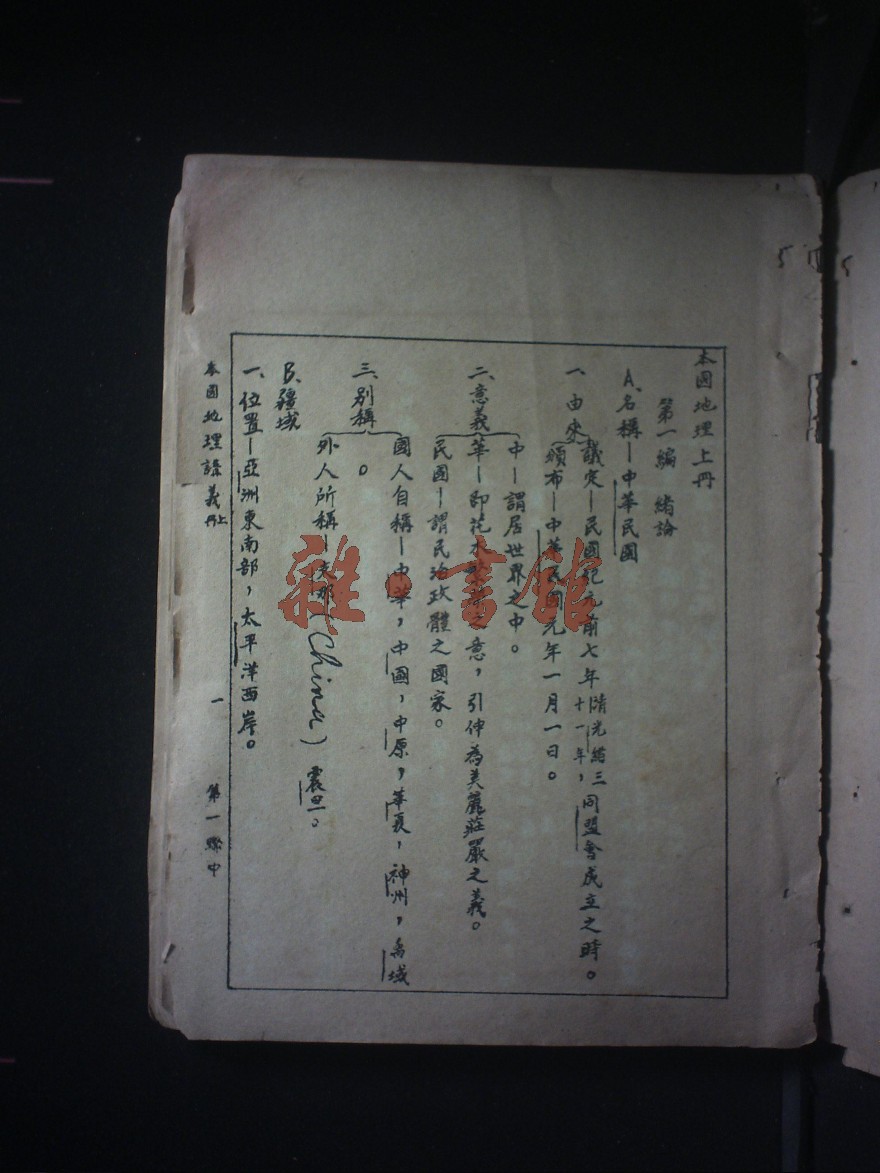 本國地理上册
第一編 緒論
A、名稱—中華民國
一、由來
議定—民國紀元前七年清光緒三十一年，同盟會成立之時。
頒布—中華民國元年一月一日。
二、意義
中—謂居世界之中。
華—即花木繁榮之意，引伸為美麗莊嚴之義。
民國—謂民治政體之國家。
三、别稱
國人自稱—中華，中國，中原，華夏，神州，禹域。
外人所稱—支那(China) 震旦。
B、疆域
一、位置—亞洲東南部，太平洋西岸。
本國地理講義上册
一
第一聯中
雜·書館